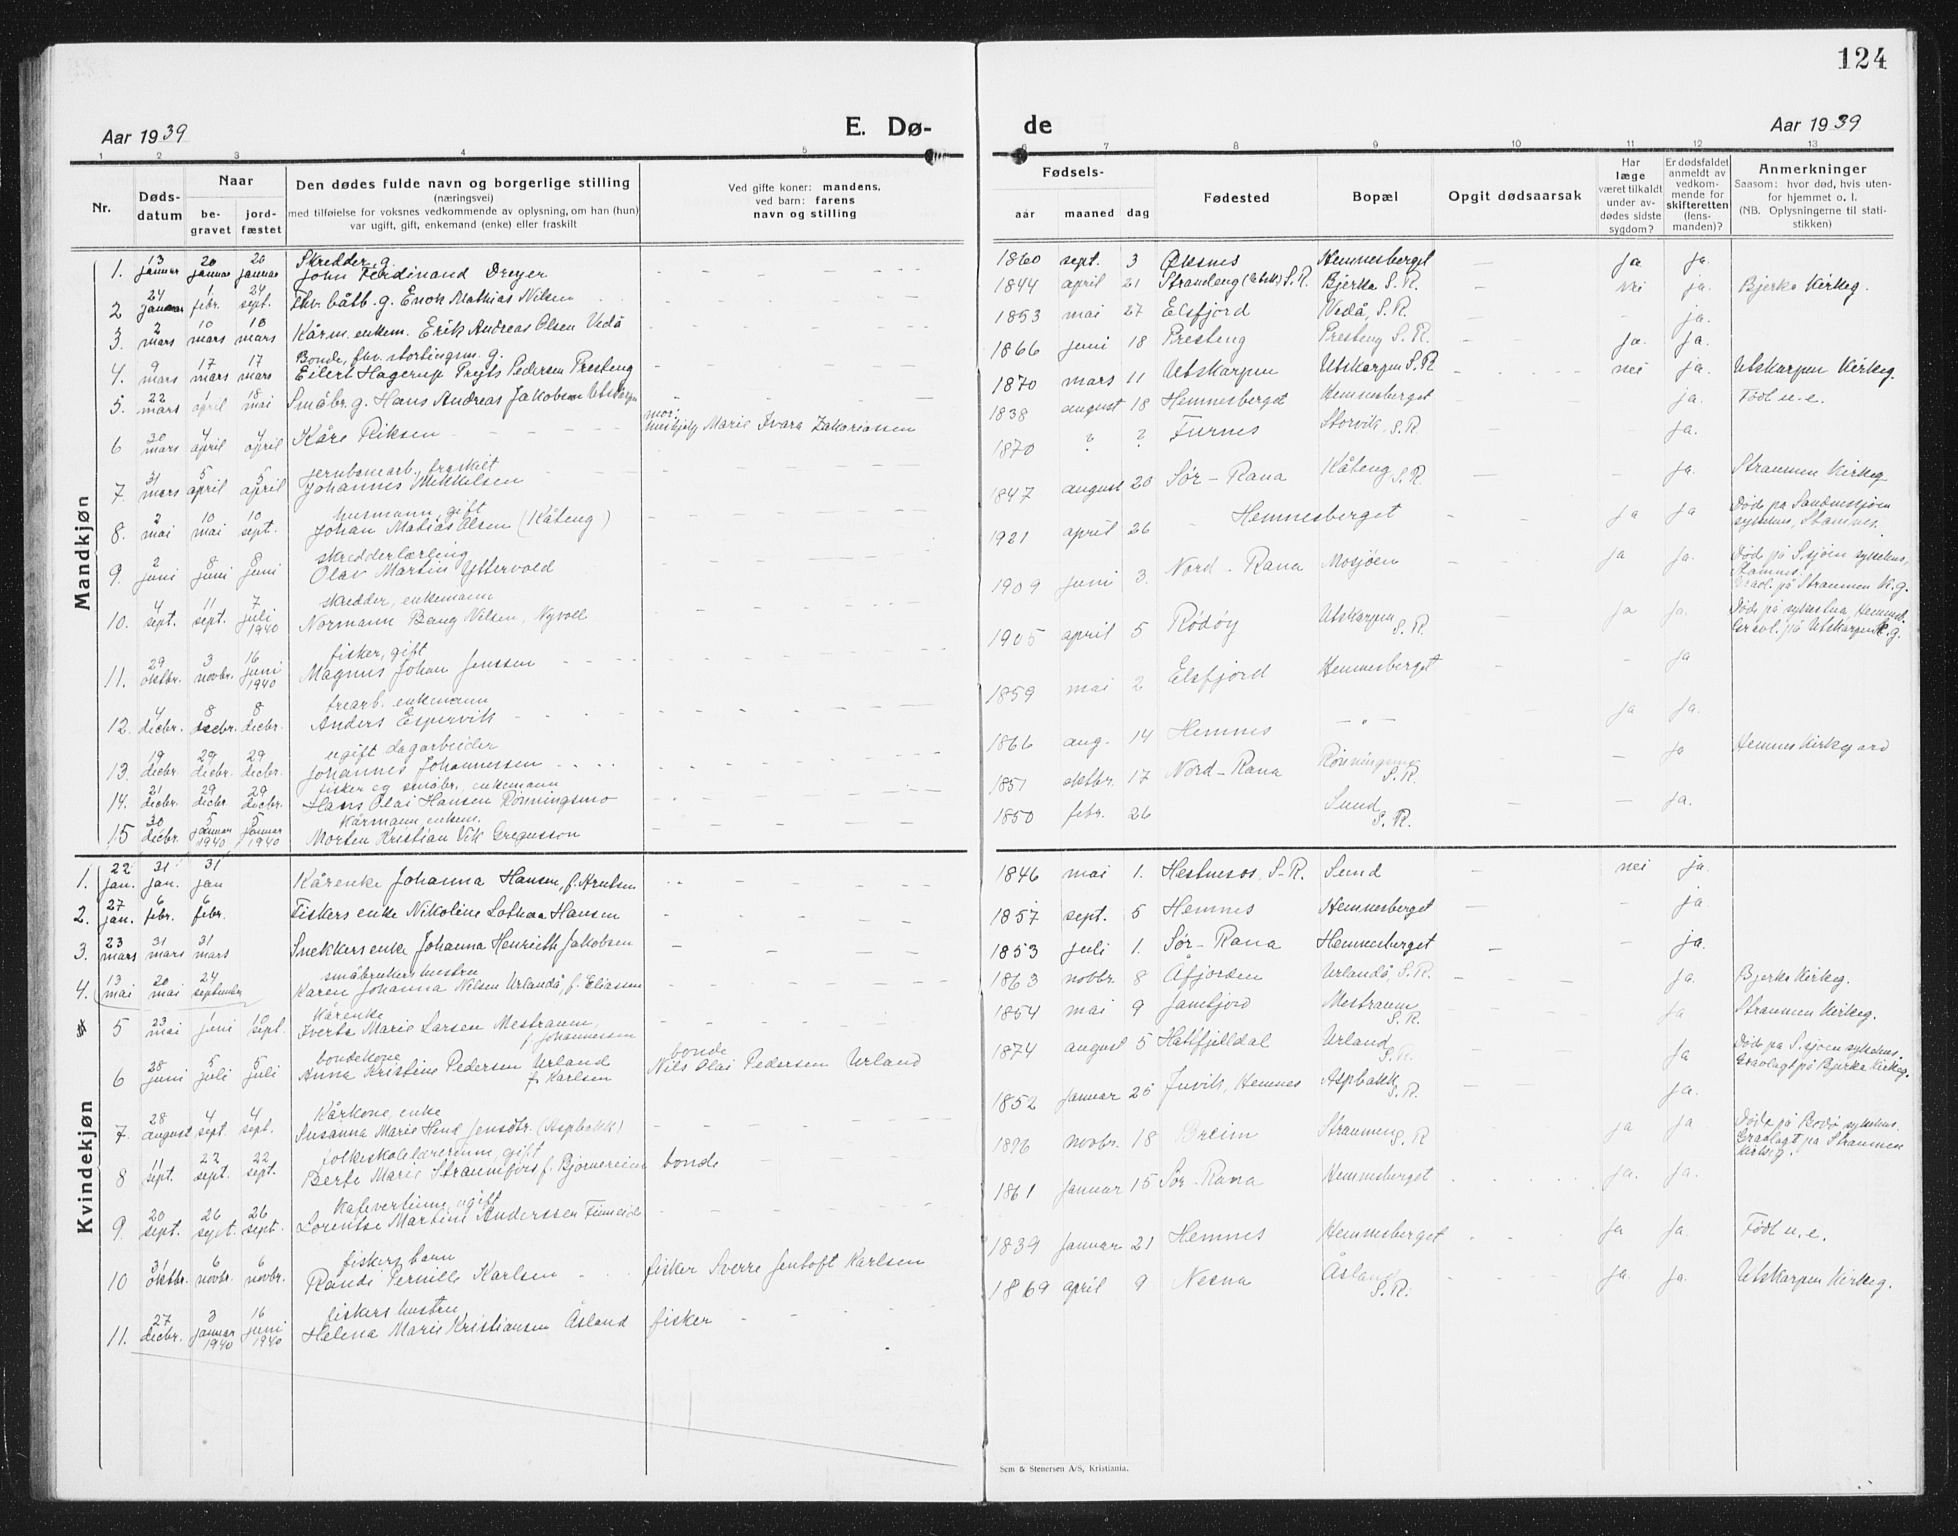 124
Aar 1939
E. Dø-
de
Aar 1939
1 2 3 4 5
6 7 8 9 10 11 12 13
Nr.
Døds-
datum
Naar
be-
gravet
jord-
fæstet
Den dødes fulde navn og borgerlige stilling
(næringsvei)
med tilføielse for voksnes vedkommende av oplysning, om han (hun)
var ugift, gift, enkemand (enke) eller fraskilt
Ved gifte koner: mandens,
ved barn: farens
navn og stilling
Fødsels-
aar maaned dag
Fødested
Bopæl
Opgit dødsaarsak
Har
læge
været tilkaldt
under av-
dødes sidste
sygdom?
Er dødsfaldet
anmeldt av
vedkom-
mende for
skifteretten
(lens-
manden)?
Anmerkninger
Saasom: hvor død, hvis uten-
for hjemmet o. l.
(NB. Oplysningerne til stati-
stikken)
Mandkjøn
1. 13 januar 20 januar 20 januar Skredder, g.
John Ferdinand Dreyer
2 24 januar 1 febr. 24 sept. Fhv. båtb. g. Enok Mathias Nilsen
3. 2 mars 10 mars 10 mars Kårm. enkem. Erik Andreas Olsen Vedå
4. 9 mars 17 mars 17 mars Bonde, fhv. stortingsm. g.
Eilert Hagerup Preyts Pedersen Presteng
5. 22 mars 1 april 18 mai Småbr. g. Hans Andreas Jakobsen Utskarpen
6 30 mars 4 april 4 april Kåre Riksen mor:
hushjelp Marie Ivara Zakariassen
7. 31 mars 5 april 5 april jernbanearb., fraskilt
Johannes Mikkelsen
8. 2 mai 10 mai 10 sept. husmann, gift
Johan Matias Olsen (Kåteng)
9. 2 juni 8 juni 8 juni skredderlærling
Olav Martin Yttervold
10. 4 sept. 11 sept. 7 juli 1940 skredder, enkemann
Normann Bang Nilsen, Nyvoll
11. 29 oktbr. 3 novbr. 16 juni 1940 fisker, gift
Magnus Johan Jenssen
12. 4 decbr. 8 decbr. 8 decbr. trearb. enkemann
Anders Espervik
13. 19 decbr. 29 decbr. 29 decbr. ugift dagarbeider
Johannes Johannessen
14. 21 decbr. 29 decbr. 29 decbr. fisker og småbr., enkemann
Hans Olai Hansen Rønningsmo
15 30 decbr. 5 januar 1940 5 januar 1940 Kårmann, enkem.
Morten Kristian Vik Gregusson
1860 sept. 3 Øksnes Hemnesberget ja ja.
1844 april 21 Strandeng S.R. Bjerka S.R. nei ja. Bjerka Kirkeg.
1853 mai 27 Elsfjord Vedå, S.R. ja.
1866 juni 18 Presteng Presteng S.R. ja. ja.
1870 mars 11 Utskarpen Utskarpen S.R. nei ja. Utskarpen Kirkeg.
1838 august 18 Hemnesberget Hemnesberget ja. Født u.e.
1870 ? ? Furnes Storvik, S.R. ja.
1847 august 20 Sør-Rana Kåteng S.R. ja. Straumen Kirkeg
1921 april 26 Hemnesberget ja ja Døde på Sandnessjøen
sykehus, Stamnes.
1909 juni 3. Nord-Rana Mosjøen ja ja. Døde på S.sjøen sykehus,
Stamnes.
Gravl. på Straumen K.g.
1905 april 5 Rödöy Utskarpen S.R. ja ja. Døde på sykestua, Hemnesb.
Gravl. på Utskarpen K.g.
1859 mai 2 Elsfjord Hemnesberget ja
ja ja.
1866 aug. 14 Hemnes Rönningsmo S.R. ja Hemnes Kirkegaard
1851 oktbr. 17 Nord-Rana
1850 febr. 26 Sund S.R. ja.
Kvindekjøn
1. 22 jan. 31 jan. 31 jan Kårenke Johanna Hansen, f. Knutsen
2. 27 jan. 6 febr. 6 febr. Fiskers enke Nikoline Lothea Hansen
3. 23 mars 31 mars 31 mars Snekkers enke Johanna Henrieth Jakobsen
4. 13 mai 20 mai 24 september småbrukers hustru
Karen Johanna Nilsen Urlandå, f. Eliassen
5 23 mai 1 juni 10 sept. Kårenke
Iverta Marie Larsen Mestraum,
f. Johannessen
6 28 juni 5 juli 5 juli bondekone
Anna Kristine Pedersen Urland
f. Karlsen bonde
Nils Olai Pedersen Urland
7. 28 august 4 sept. 4 sept. Kårkone, enke
Susanna Marie Hend Jensdtr. (Aspbakk)
8 11 sept. 22 sept. 22 sept. folkeskolelærerinne, gift
Berte Marie Straumfors f. Bjørnereim bonde
9. 20 sept. 26 sept. 26 sept. Kafevertinne, ugift
Lorentse Martine Anderssen Finneide
10 31 oktbr. 6 novbr. 6 novbr. fiskers barn
Randi Pernille Karlsen fisker Sverre Jentoft Karlsen
11. 27 decbr. 3 januar 1940 16 juni 1940 fiskers hustru
Helena Marie Kristiansen Åsland fisker
1846 mai 1. Hestnesos, S-R. Sund nei ja
1857 sept. 5 Hemnes Hemnesberget ja
1853 juli 1. Sør-Rana Hemnesberget ja.
1863 novbr. 8 Åfjorden Urlandå, S.R. ja. Bjerka Kirkeg.
1854 mai 9 Jamtjord Mestraum S.R. ja Straumen Kirkeg.
1874 august 5 Hattfjelldal Urland S.R. ja Døde på S.sjøen sykehus.
Gravlagt på Bjerka Kirkeg.
1852 januar 25 Juvik, Hemnes Aspbakk S.R. ja.
1896 novbr. 18 Breim Straumen S.R ja ja Døde på Bodø sykehus.
Gravlagt på Straumen
kirkeg.
1861 januar 15 Sør-Rana Hemnesberget ja. ja.
1839 januar 21 Hemnes Hemnesberget ja ja Født u.e.
1869 april 9 Nesna Åsland S.R. ja. ja. Utskarpen Kirkeg.
Sem & Stenersen A/S, Kristiania.